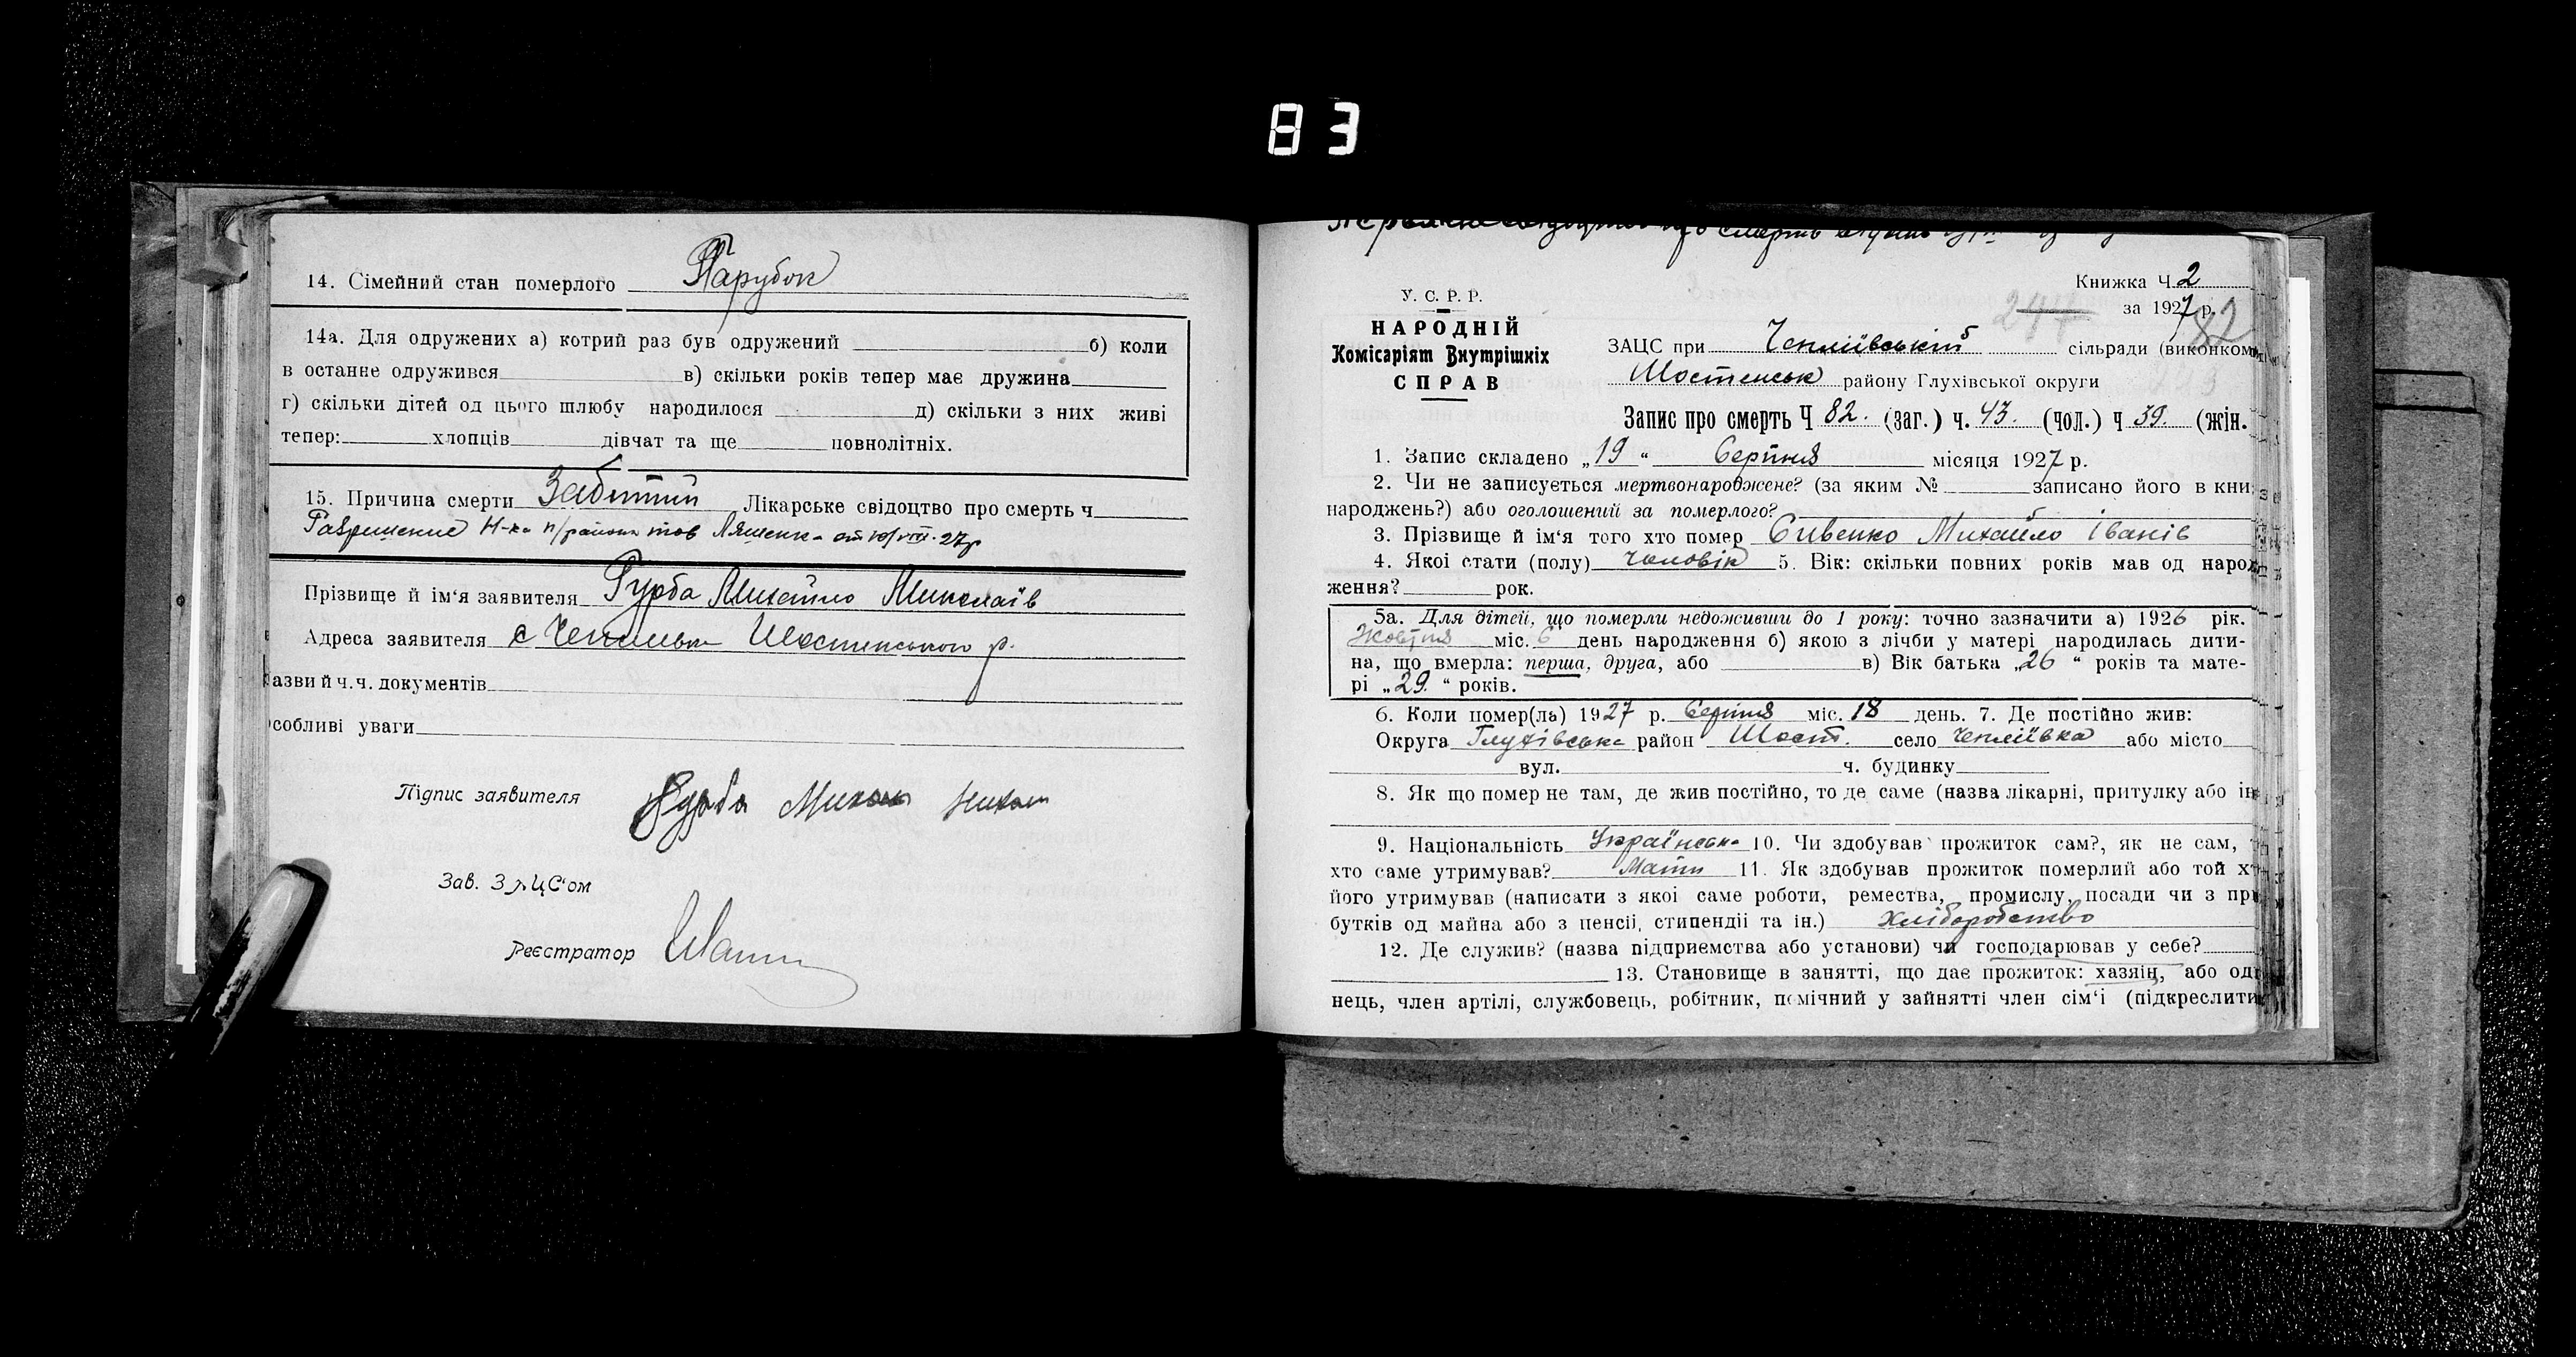 83
14. Сімейний стан померлого Парубок
14а. Для одружених а) котрий раз був одружений б) коли
в останнє одружився в) скільки років тепер має дружина
г) скільки дітей од цього шлюбу народилося д) скільки з них живі
тепер: хлопців дівчат та ще повнолітніх.
15. Причина смерти Забитий Лікарське свідоцтво про смерть ч
Разрешение Н-ка п/района тов Ляшенка от VIII-27р
Прізвище й ім'я заявителя Гурба Михайло Миколаїв
Адреса заявителя с Чепліївка Шостенського р.
азви й ч.ч. документів
собливі уваги
Підпис заявителя Гурба Михаил
Зав. ЗАЦС'ом
Реєстратор
про смерть
Книжка Ч 2
У. С. Р. Р.
за 1927 р.
244 82
НАРОДНІЙ
Комісаріят Внутрішніх
СПРАВ
ЗАЦС при Чепліївській сільради (виконком
Шостенськ району Глухівської округи
Запис про смерть Ч 82. (заг.) ч. 43. (чол.) ч 39. (жін.
1. Запис складено „19“ Серпня місяця 1927 р.
2. Чи не записується мертвонароджене? (за яким № записано його в кни
народжень?) або оголошений за померлого?
3. Прізвище й ім'я того хто помер Сивенко Михайло Іванів
4. Якої стати (полу) Чоловік 5. Вік: скільки повних років мав од народ
ження? рок.
5а. Для дітей, що померли недоживши до 1 року: точно зазначити а) 1926 рік.
Жовтня міс. 6 день народження б) якою з лічби у матері народилась дити-
на, що вмерла: перша, друга, або в) Вік батька „26“ років та мате-
рі „29“ років.
6. Коли помер(ла) 1927 р. Серпня міс. 18 день. 7. Де постійно жив:
Округа Глухівська район Шост. село Чепліївка або місто
вул. ч. будинку
8. Як що помер не там, де жив постійно, то де саме (назва лікарні, притулку або ін
9. Національність Українська 10. Чи здобував прожиток сам?, як не сам,
хто саме утримував? Мати 11. Як здобував прожиток померлий або той х
його утримував (написати з якої саме роботи, ремества, промислу, посади чи з пр
бутків од майна або з пенсії, стипендії та ін.) Хліборобство
12. Де служив? (назва підприємства або установи) чи господарював у себе?
13. Становище в занятті, що дає прожиток: хазяїн, або од
нець, член артілі, службовець, робітник, помічний у зайнятті член сім'ї (підкреслити